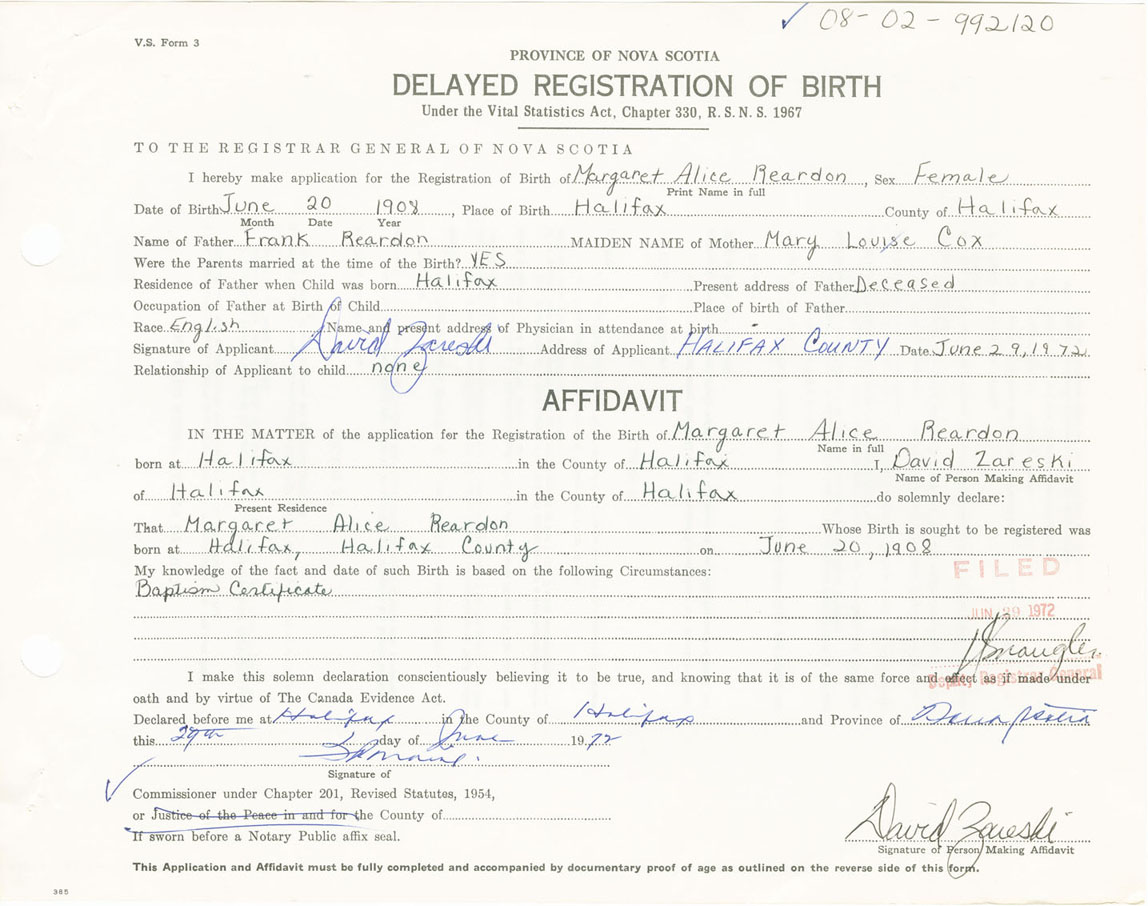 ✓ 08-02-992120
V.S. Form 3
PROVINCE OF NOVA SCOTIA
DELAYED REGISTRATION OF BIRTH
Under the Vital Statistics Act, Chapter 330, R. S. N. S. 1967
TO THE REGISTRAR GENERAL OF NOVA SCOTIA
I hereby make application for the Registration of Birth of Margaret Alice Reardon, Sex Female
Print Name in full
Date of Birth June 20 1908, Place of Birth Halifax County of Halifax
Month Date Year
Name of Father Frank Reardon MAIDEN NAME of Mother Mary Louise Cox
Were the Parents married at the time of the Birth? YES
Residence of Father when Child was born Halifax Present address of Father Deceased
Occupation of Father at Birth of Child Place of birth of Father
Race English Name and present address of Physician in attendance at birth -
Signature of Applicant David Zareski Address of Applicant HALIFAX COUNTY Date June 29, 1972
Relationship of Applicant to child none
AFFIDAVIT
IN THE MATTER of the application for the Registration of the Birth of Margaret Alice Reardon
Name in full
born at Halifax in the County of Halifax I, David Zareski
Name of Person Making Affidavit
of Halifax in the County of Halifax do solemnly declare:
Present Residence
That Margaret Alice Reardon Whose Birth is sought to be registered was
born at Halifax, Halifax County on June 20, 1908
My knowledge of the fact and date of such Birth is based on the following Circumstances:
FILED
Baptism Certificate
JUN 29 1972
I make this solemn declaration conscientiously believing it to be true, and knowing that it is of the same force and effect as if made under
Deputy Registrar General
oath and by virtue of The Canada Evidence Act.
Declared before me at Halifax in the County of Halifax and Province of Nova Scotia
this 29th day of June 1972
Signature of
✓ Commissioner under Chapter 201, Revised Statutes, 1954,
or Justice of the Peace in and for the County of
If sworn before a Notary Public affix seal.
David Zareski
Signature of Person Making Affidavit
This Application and Affidavit must be fully completed and accompanied by documentary proof of age as outlined on the reverse side of this form.
365